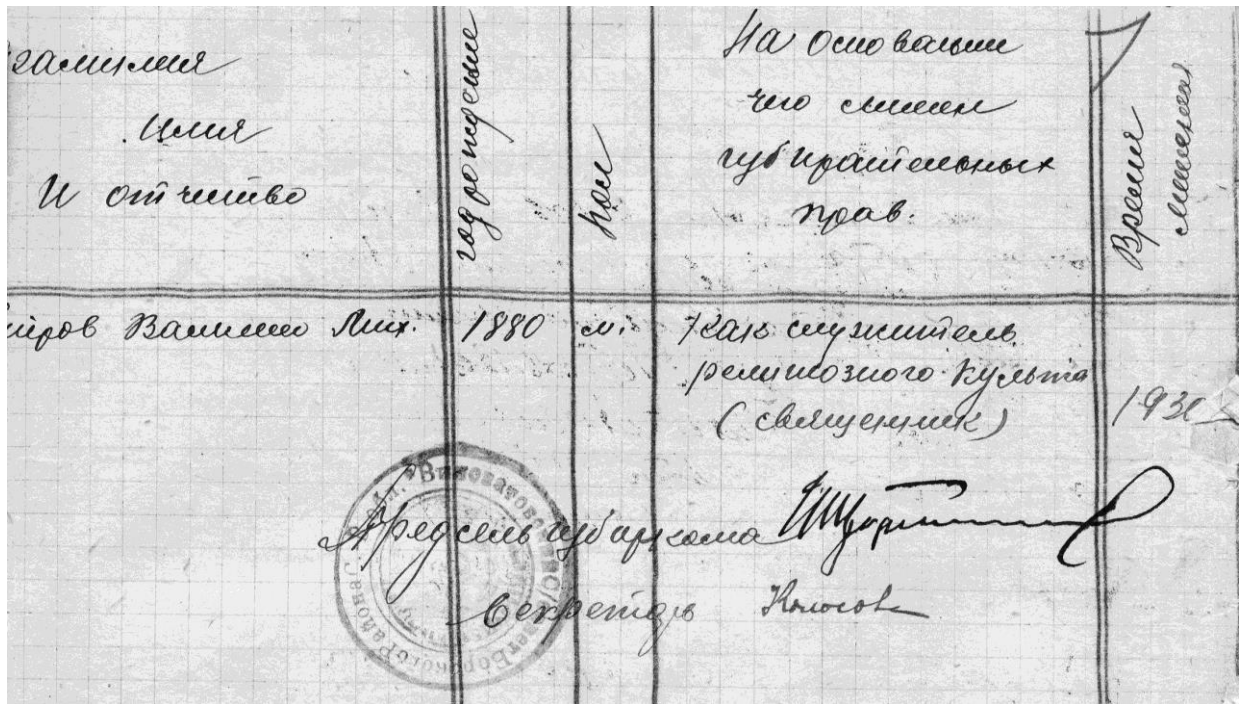 фамилия
Имя
И отчество
год рождение
пол
На основании
чего лишен
губирательных
прав.
Время
лишения
иров Василий Мих. 1880 м. Как служитель
религиозного культа
(священник)
1930
Предсель губиркома
Секретарь Колосов